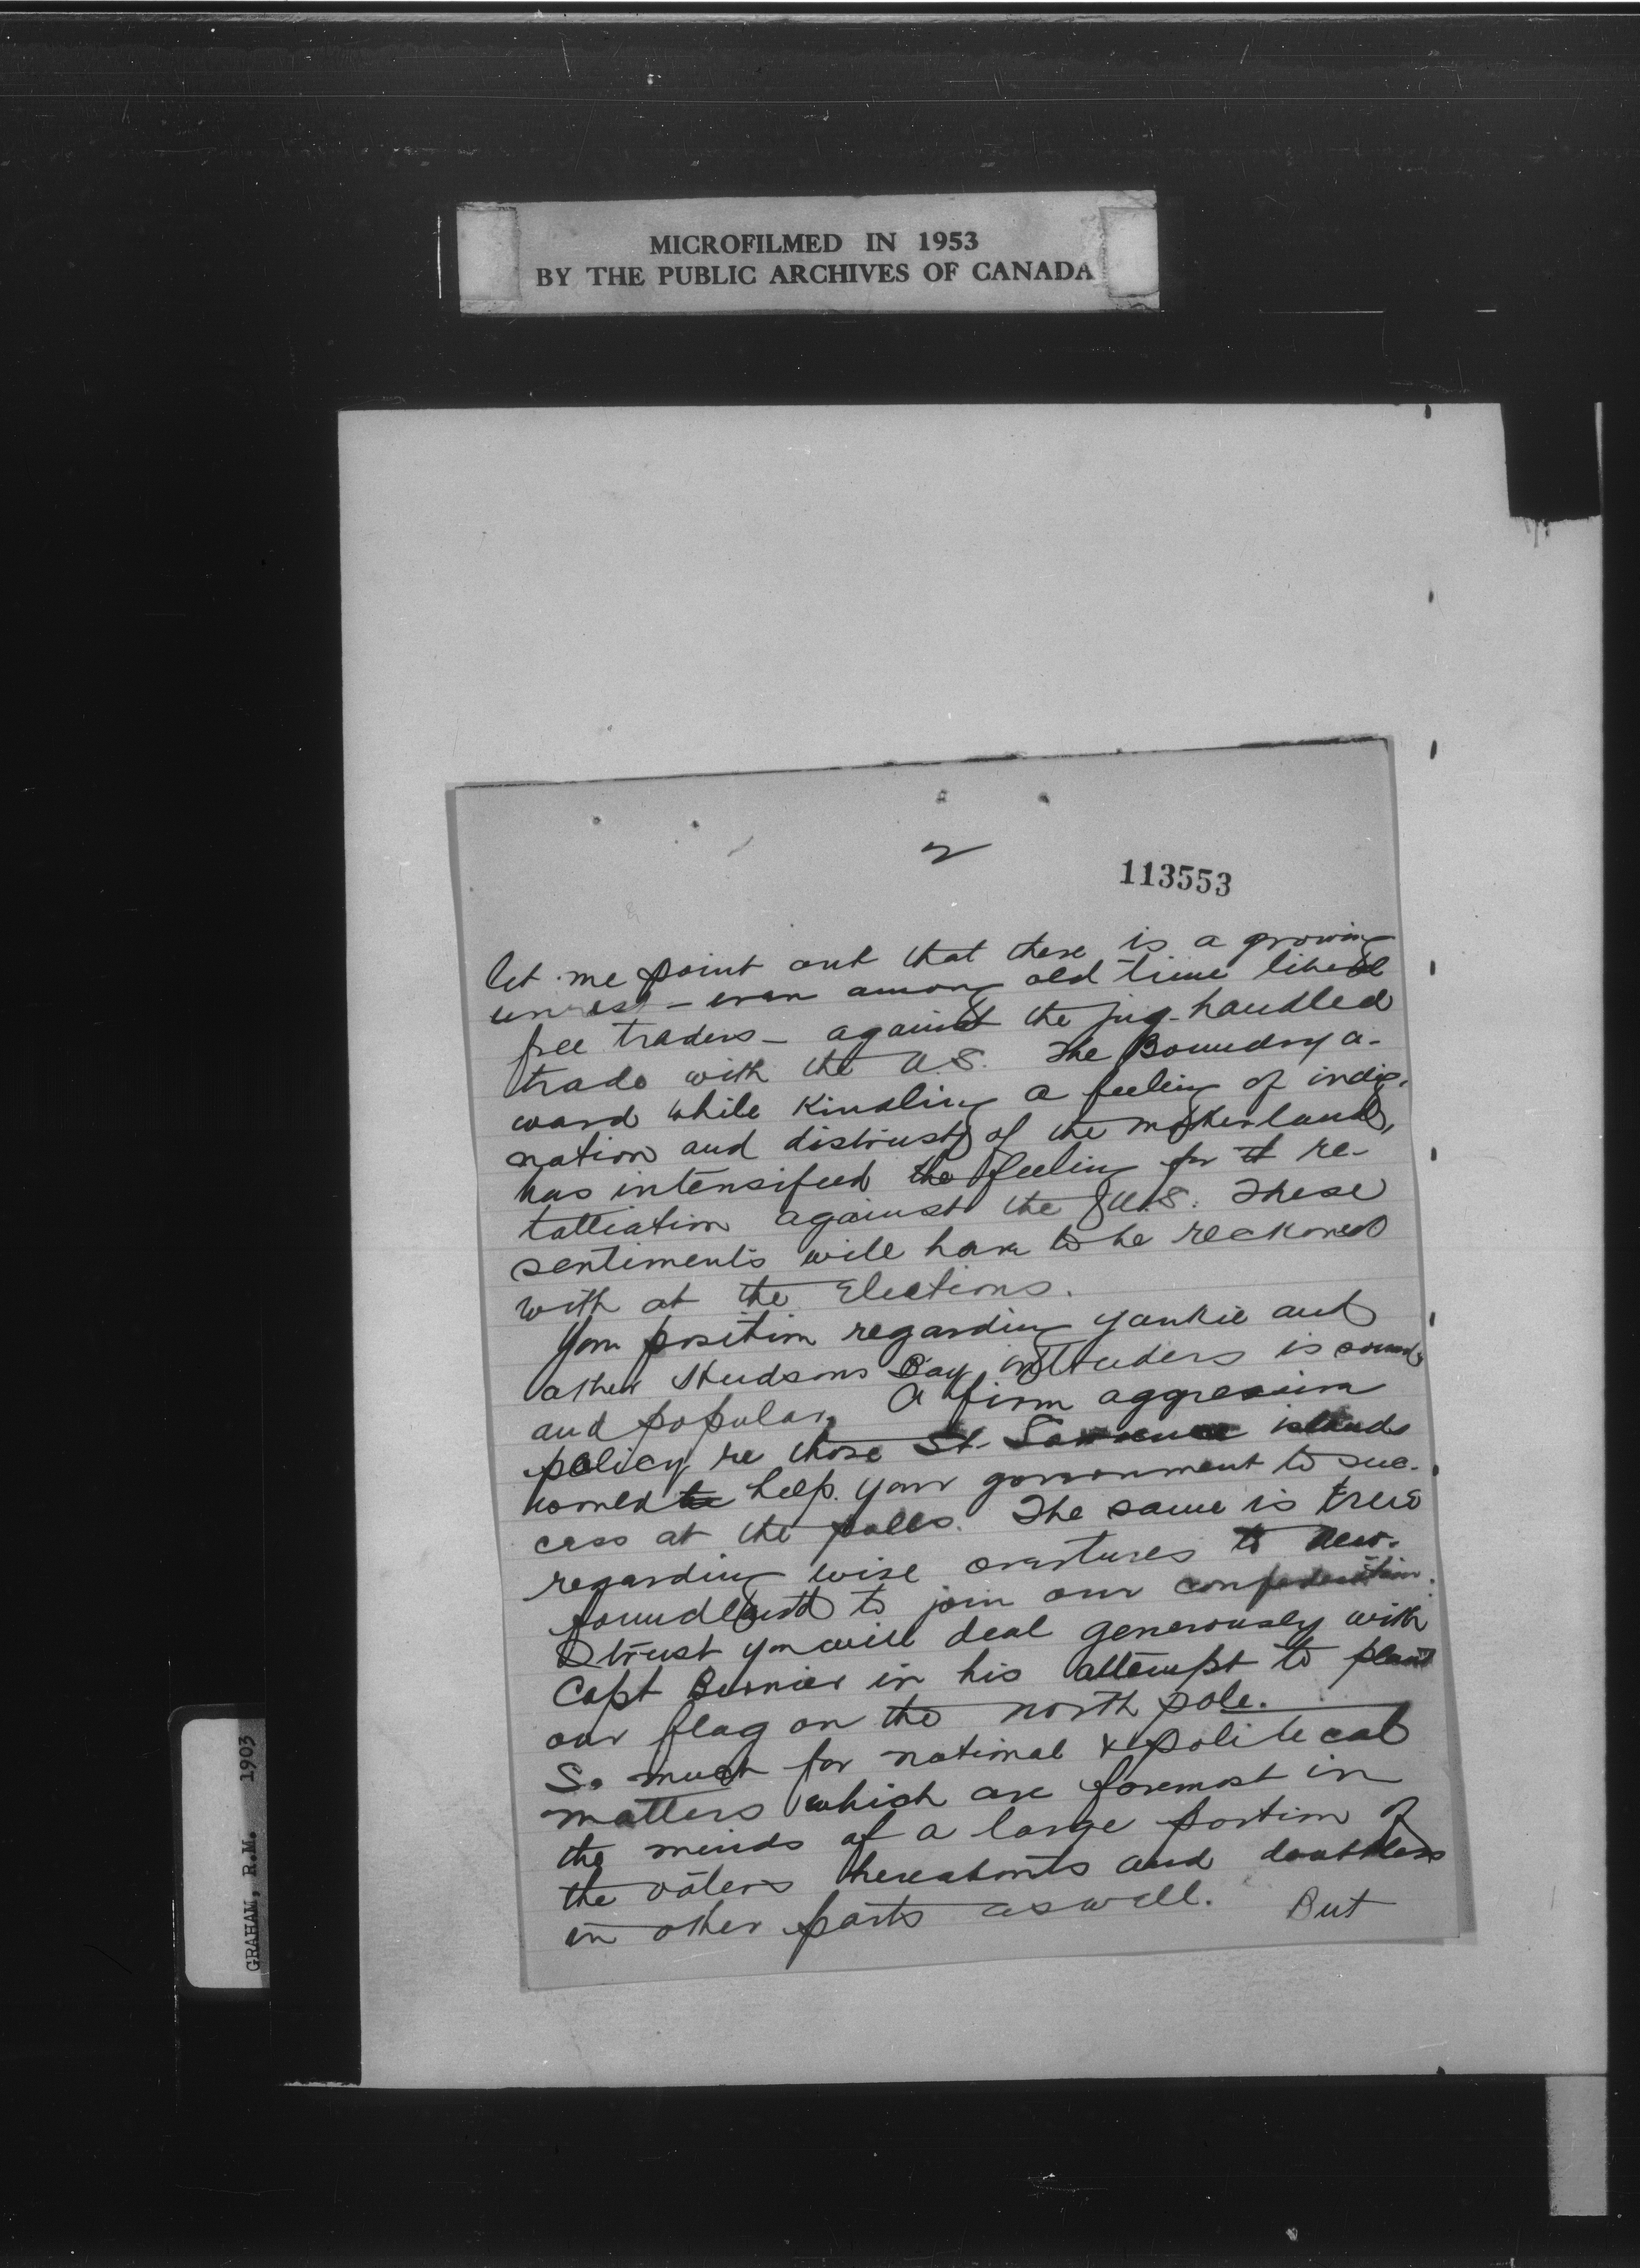 MICROFILMED IN 1953
BY THE PUBLIC ARCHIVES OF CANADA
2
113553
let me point out that there is a growing
unrest - even among old time liberal
free traders - against the jug-handled
trade with the U.S. The Boundry a-
ward while kindling a feeling of indig-
nation and distrust of the motherland,
has intensifeed the feeling for re-
talliation against the U.S. These
sentiments will have to be reckoned
with at the Elections.
Your position regarding yankie and
other Hudsons Bay intruders is sound
and popular. A firm aggressive
policy re those St. Lawrence islands
would help your government to suc-
cess at the polls. The same is true
regarding wise overtures to New-
foundland to join our confederation.
I trust you will deal generously with
Capt Bernier in his attempt to plant
our flag on the north pole.
So much for national & political
matters which are foremost in
the minds of a large portion of
the voters hereabouts and doubtless
in other parts as well. But
GRAHAM, R.M. 1903